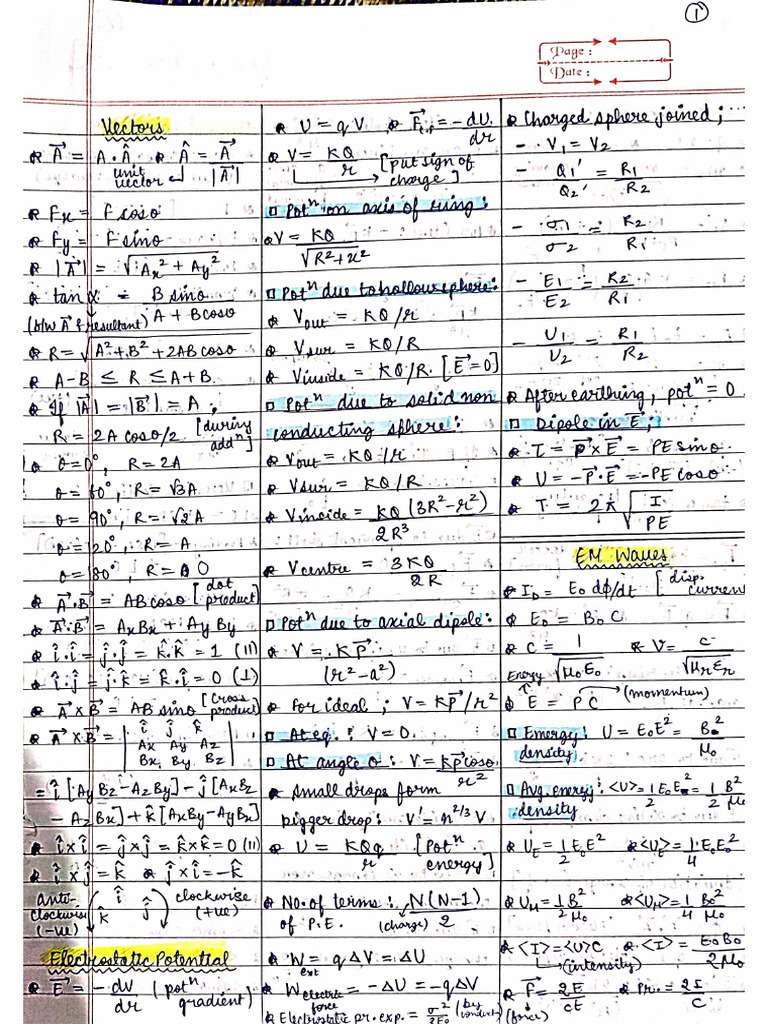 ①
Page :
Date :
Vectors
A⃗ = A · Â , Â = A⃗ / |A⃗|
unit vector
Fx = F cosθ
Fy = F sinθ
|A⃗| = √(Ax² + Ay²)
tan α = B sinθ / (A + B cosθ)
(b/w A⃗ & resultant)
R = √(A² + B² + 2AB cosθ)
A-B ≤ R ≤ A+B
If |A⃗| = |B⃗| = A ,
R = 2A cosθ/2 [during addⁿ]
θ = 0°, R = 2A
θ = 60°, R = √3A
θ = 90°, R = √2A
θ = 120°, R = A
θ = 180°, R = 0
A⃗·B⃗ = AB cosθ [dot product]
A⃗·B⃗ = AxBx + AyBy
î·î = ĵ·ĵ = k̂·k̂ = 1 (||)
î·ĵ = ĵ·k̂ = k̂·î = 0 (⊥)
A⃗×B⃗ = AB sinθ [cross product]
A⃗×B⃗ = | î ĵ k̂ |
| Ax Ay Az |
| Bx By Bz |
= î [AyBz - AzBy] - ĵ [AxBz
- AzBx] + k̂ [AxBy - AyBx]
î×î = ĵ×ĵ = k̂×k̂ = 0 (||)
î×ĵ = k̂ ĵ×î = -k̂
anti-clockwise (-ve) î k̂ ĵ clockwise (+ve)
Electrostatic Potential
E⃗ = -dV/dr (potⁿ gradient)
U = qV. F⃗ = -dU/dr
V = KQ/r [put sign of charge]
Potⁿ on axis of ring:
V = KQ / √(R²+x²)
Potⁿ due to hollow sphere:
Vout = KQ/r
Vsur = KQ/R
Vinside = KQ/R. [E⃗=0]
Potⁿ due to solid non
conducting sphere:
Vout = KQ/r
Vsur = KQ/R
Vinside = KQ (3R²-r²) / 2R³
Vcentre = 3KQ / 2R
Potⁿ due to axial dipole:
V = KP⃗ / (r²-a²)
For ideal ; V = KP⃗/r²
At eq. : V = 0.
At angle θ : V = KP⃗cosθ / r²
small drops form
bigger drop: V' = n^2/3 V
U = KQq / r [Potⁿ energy]
No. of terms : N(N-1) / 2
of P.E. (charge)
W ext = qΔV = ΔU
W electric force = -ΔU = -qΔV
Electrostatic pr. exp. = σ²/2ε₀ (by conduct)
Charged sphere joined ;
- V1 = V2
- Q1'/Q2' = R1/R2
- σ1/σ2 = R2/R1
- E1/E2 = R2/R1
- U1/U2 = R1/R2
After earthing, potⁿ = 0
Dipole in E⃗ ;
τ = P⃗×E⃗ = PE sinθ
U = -P⃗·E⃗ = -PE cosθ
T = 2π √(I/PE)
EM Waves
ID = ε₀ dφ/dt [disp. current
E₀ = B₀ C
C = 1/√(μ₀ε₀) V = c/√(μrεr)
Energy E = PC (momentum)
Energy density : U = ε₀E² = B₀²/μ₀
Avg. energy density : <U> = 1/2 ε₀E₀² = 1/2 B²/μ₀
UE = 1/2 ε₀E² <UE> = 1/4 ε₀E₀²
UM = 1/2 B²/μ₀ <UM> = 1/4 B₀²/μ₀
<I> = <U>C <I> = E₀B₀/2μ₀
(intensity)
F⃗ = 2E/ct Pr. = 2I/C
(force)